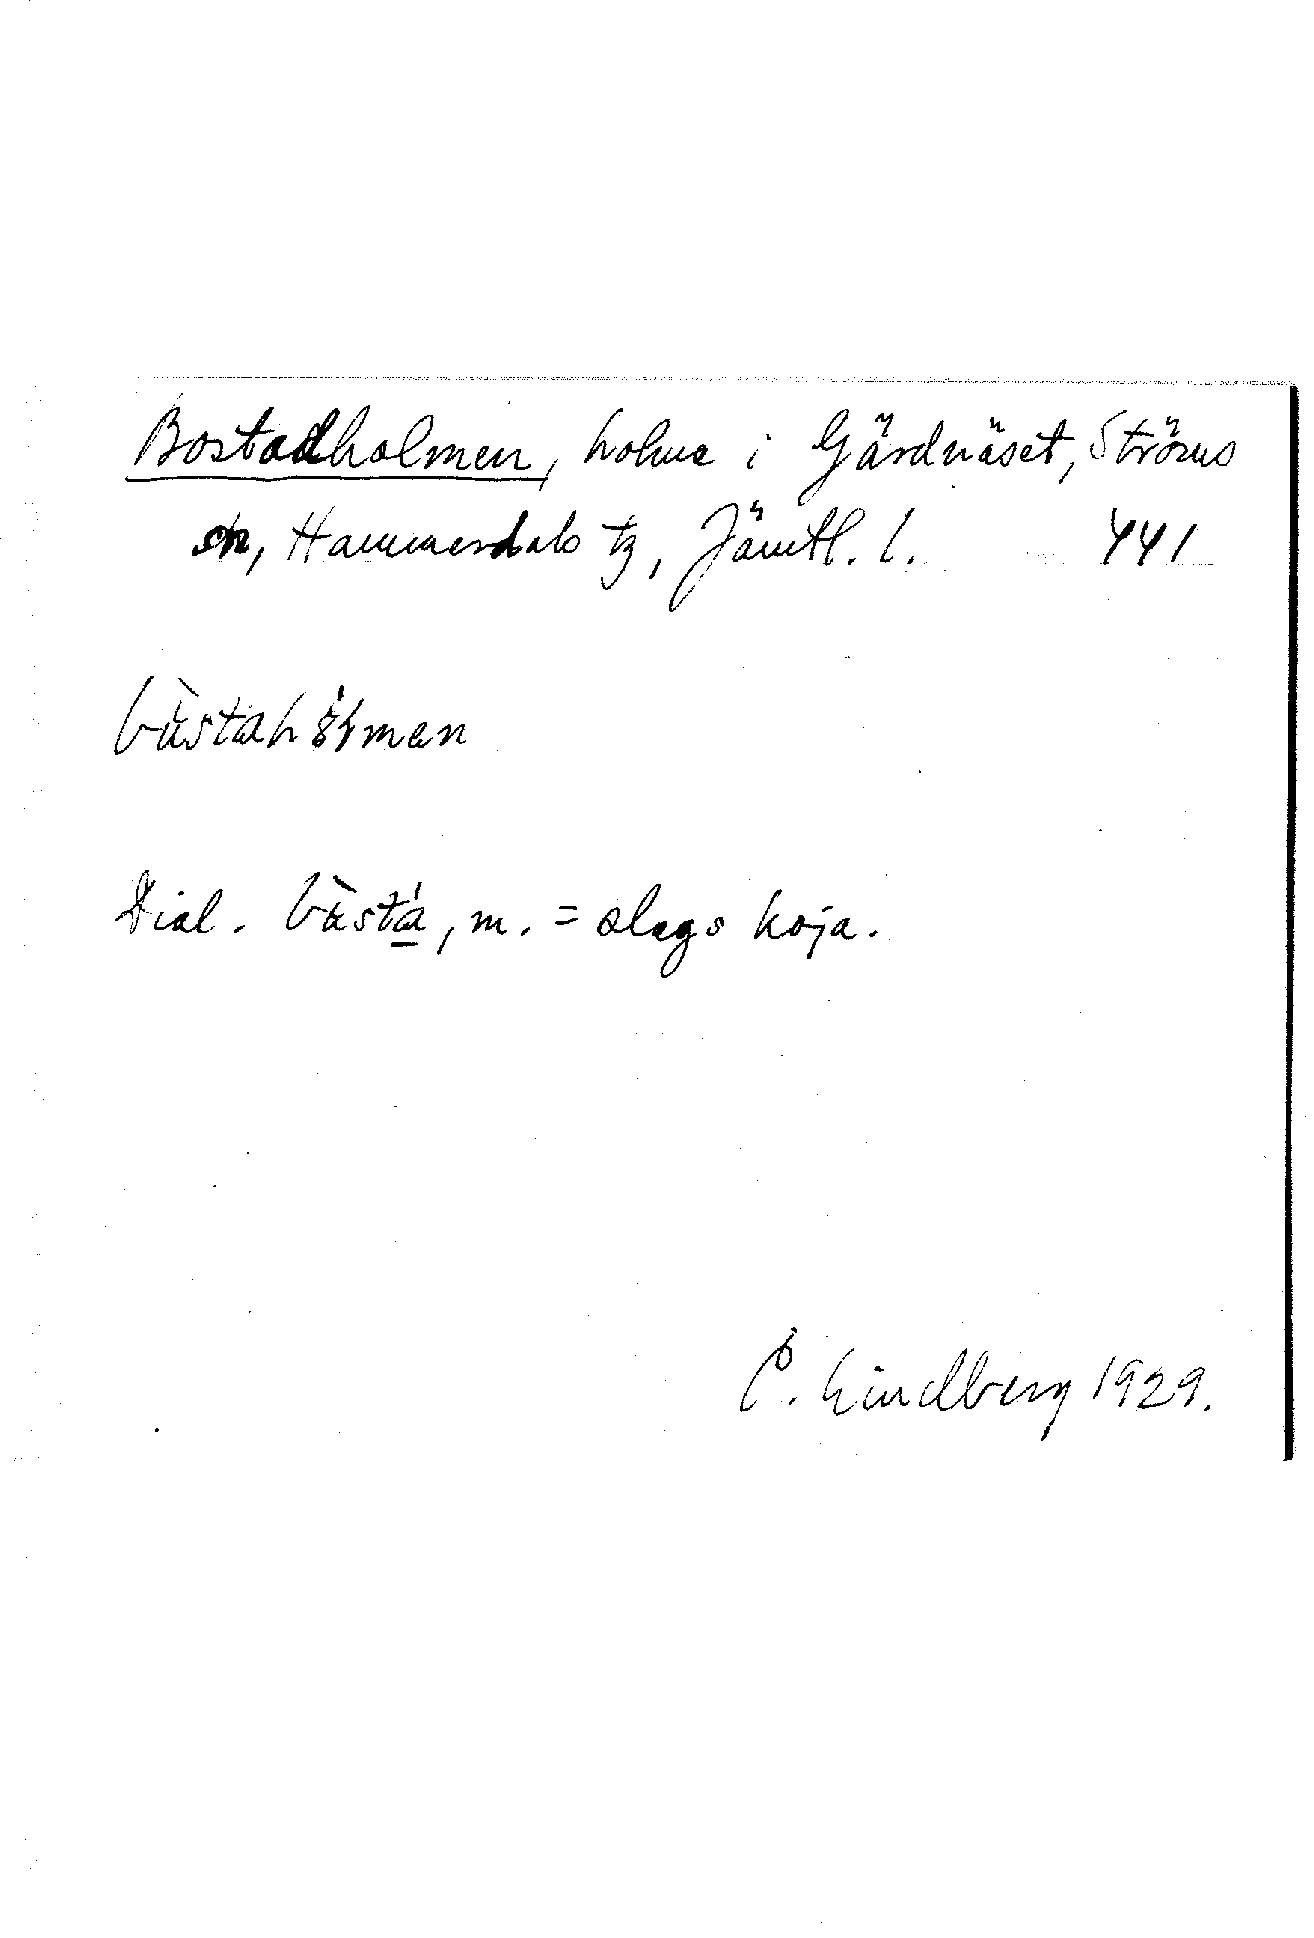 Bostadholmen, holme i Gärdnäset, Ströms
sn, Hammerdals tg, Jämtl. l. 441
bùstahólmen
Dial. bùstá, m. = slags koja.
C. Lindberg 1929.